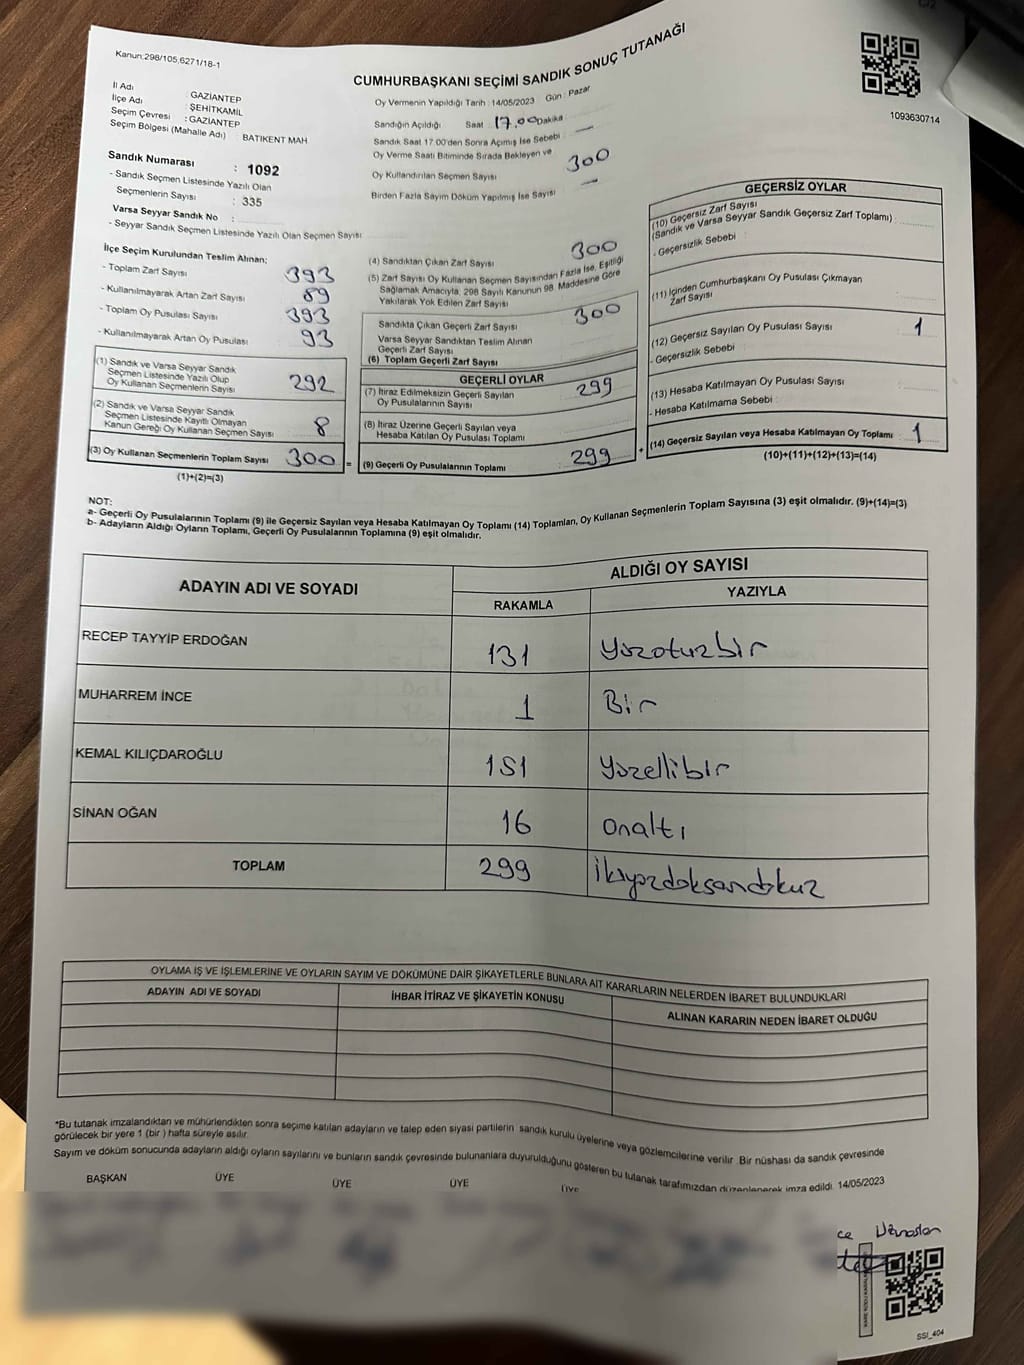 Kanun:298/105,6271/18-1
CUMHURBAŞKANI SEÇİMİ SANDIK SONUÇ TUTANAĞI
1093630714
İl Adı : GAZİANTEP
İlçe Adı : ŞEHİTKAMİL
Seçim Çevresi : GAZİANTEP
Seçim Bölgesi (Mahalle Adı) : BATIKENT MAH
Sandık Numarası : 1092
- Sandık Seçmen Listesinde Yazılı Olan
Seçmenlerin Sayısı : 335
Varsa Seyyar Sandık No :
- Seyyar Sandık Seçmen Listesinde Yazılı Olan Seçmen Sayısı
Oy Vermenin Yapıldığı Tarih : 14/05/2023 Gün : Pazar
Sandığın Açıldığı Saat 17.00 Dakika
Sandık Saat 17.00'den Sonra Açımış İse Sebebi —
Oy Verme Saati Bitiminde Sırada Bekleyen ve
Oy Kullandırılan Seçmen Sayısı 300
Birden Fazla Sayım Döküm Yapılmış İse Sayısı —
İlçe Seçim Kurulundan Teslim Alınan;
- Toplam Zarf Sayısı 393
- Kullanılmayarak Artan Zarf Sayısı 89
- Toplam Oy Pusulası Sayısı 393
- Kullanılmayarak Artan Oy Pusulası 93
(1) Sandık ve Varsa Seyyar Sandık
Seçmen Listesinde Yazılı Olup
Oy Kullanan Seçmenlerin Sayısı 292
(2) Sandık ve Varsa Seyyar Sandık
Seçmen Listesinde Kayıtlı Olmayan
Kanun Gereği Oy Kullanan Seçmen Sayısı 8
(3) Oy Kullanan Seçmenlerin Toplam Sayısı 300 =
(1)+(2)=(3)
(4) Sandıktan Çıkan Zarf Sayısı 300
(5) Zarf Sayısı Oy Kullanan Seçmen Sayısından Fazla İse, Eşitliği
Sağlamak Amacıyla; 298 Sayılı Kanunun 98. Maddesine Göre
Yakılarak Yok Edilen Zarf Sayısı
Sandıkta Çıkan Geçerli Zarf Sayısı 300
Varsa Seyyar Sandıktan Teslim Alınan
Geçerli Zarf Sayısı
(6) Toplam Geçerli Zarf Sayısı
GEÇERLİ OYLAR
(7) İtiraz Edilmeksizin Geçerli Sayılan
Oy Pusulalarının Sayısı 299
(8) İtiraz Üzerine Geçerli Sayılan veya
Hesaba Katılan Oy Pusulası Toplamı
(9) Geçerli Oy Pusulalarının Toplamı 299 +
GEÇERSİZ OYLAR
(10) Geçersiz Zarf Sayısı
(Sandık ve Varsa Seyyar Sandık Geçersiz Zarf Toplamı) :
- Geçersizlik Sebebi :
(11) İçinden Cumhurbaşkanı Oy Pusulası Çıkmayan
Zarf Sayısı
(12) Geçersiz Sayılan Oy Pusulası Sayısı : 1
- Geçersizlik Sebebi :
(13) Hesaba Katılmayan Oy Pusulası Sayısı :
- Hesaba Katılmama Sebebi :
(14) Geçersiz Sayılan veya Hesaba Katılmayan Oy Toplamı : 1
(10)+(11)+(12)+(13)=(14)
NOT:
a- Geçerli Oy Pusulalarının Toplamı (9) ile Geçersiz Sayılan veya Hesaba Katılmayan Oy Toplamı (14) Toplamları, Oy Kullanan Seçmenlerin Toplam Sayısına (3) eşit olmalıdır. (9)+(14)=(3)
b- Adayların Aldığı Oyların Toplamı, Geçerli Oy Pusulalarının Toplamına (9) eşit olmalıdır.
ADAYIN ADI VE SOYADI
ALDIĞI OY SAYISI
RAKAMLA YAZIYLA
RECEP TAYYİP ERDOĞAN 131 Yüzotuzbir
MUHARREM İNCE 1 Bir
KEMAL KILIÇDAROĞLU 151 Yüzellibir
SİNAN OĞAN 16 onaltı
TOPLAM 299 İkiyüzdoksandokuz
OYLAMA İŞ VE İŞLEMLERİNE VE OYLARIN SAYIM VE DÖKÜMÜNE DAİR ŞİKAYETLERLE BUNLARA AİT KARARLARIN NELERDEN İBARET BULUNDUKLARI
ADAYIN ADI VE SOYADI İHBAR İTİRAZ VE ŞİKAYETİN KONUSU ALINAN KARARIN NEDEN İBARET OLDUĞU
*Bu tutanak imzalandıktan ve mühürlendikten sonra seçime katılan adayların ve talep eden siyasi partilerin sandık kurulu üyelerine veya gözlemcilerine verilir. Bir nüshası da sandık çevresinde
görülecek bir yere 1 (bir ) hafta süreyle asılır.
Sayım ve döküm sonucunda adayların aldığı oyların sayılarını ve bunların sandık çevresinde bulunanlara duyurulduğunu gösteren bu tutanak tarafımızdan düzenlenerek imza edildi. 14/05/2023
BAŞKAN ÜYE ÜYE ÜYE ÜYE
SSI_404